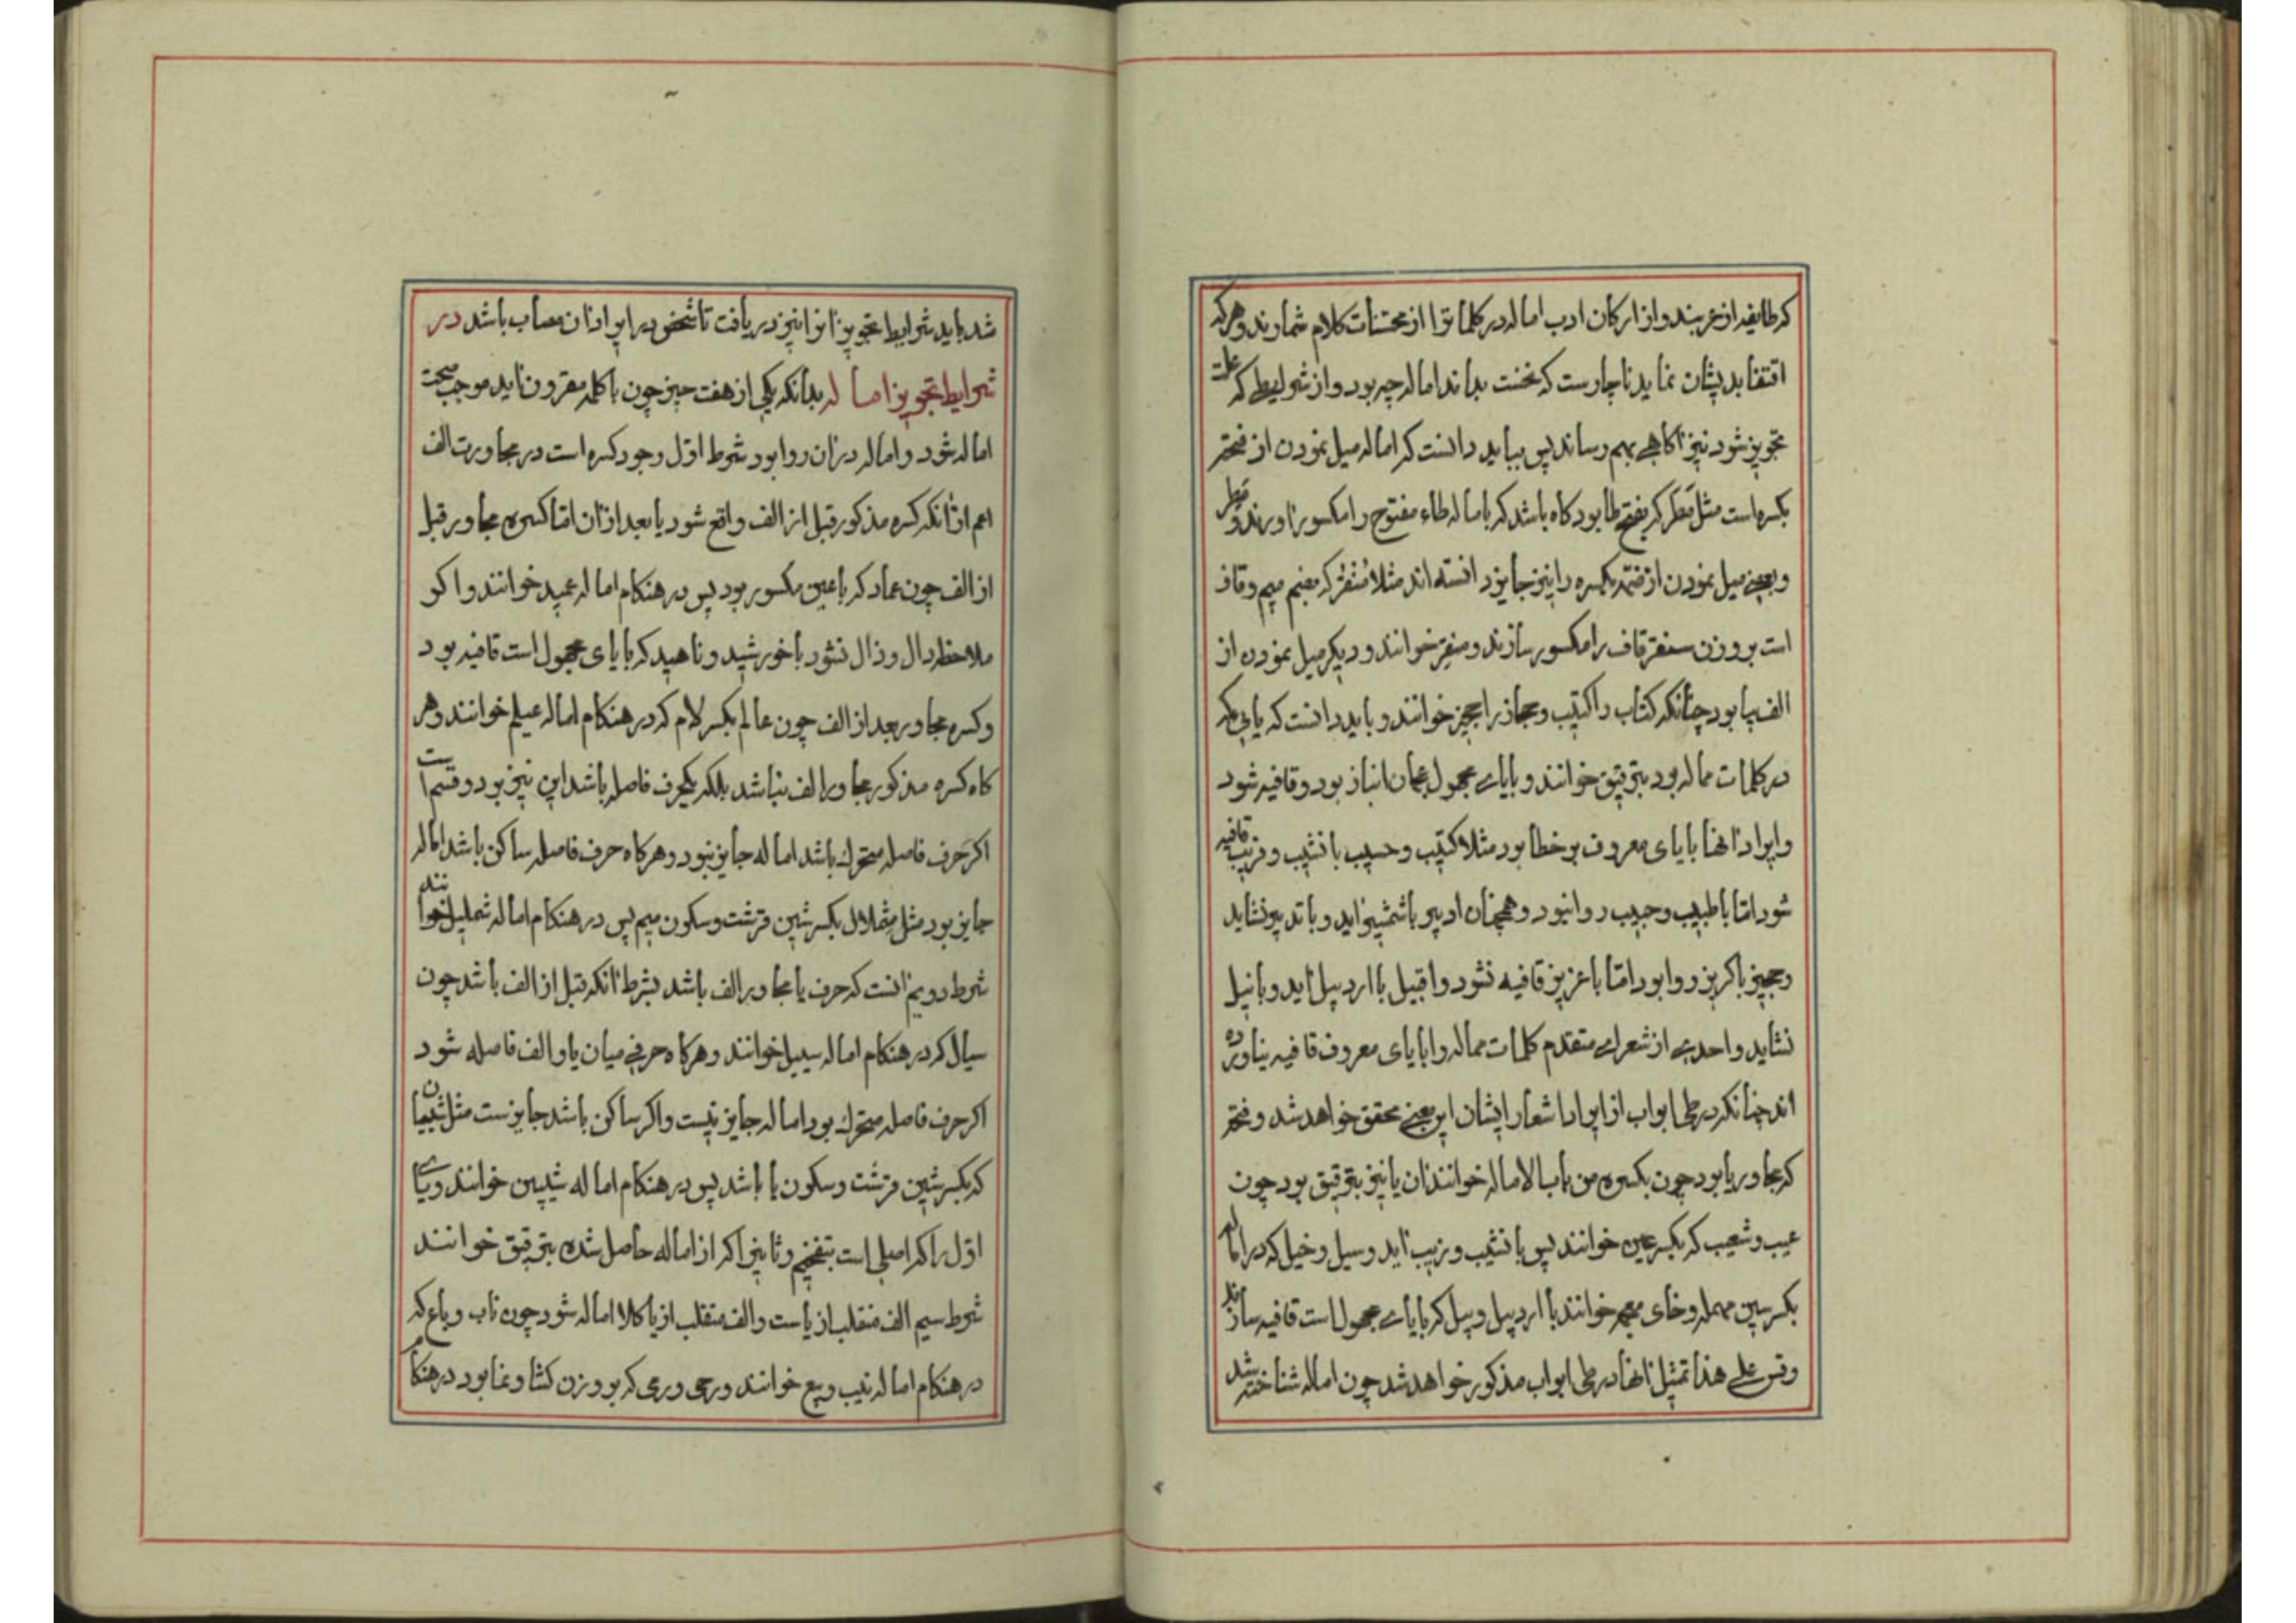 که طایفه از عربند و از ارکان ادب اماله در کلمات را از محسنات کلام شمارند و هر که
اقتفا بدیشان نماید ناچارست که نخست بداند اماله چه بود و از شرایطی که علت
تجویز شود نیز آکاهی بهم رساند پس بباید دانست که اماله میل نمودن از فتحه
بکسره است مثل مَطَر که بفتح طا بود کاه باشد که باماله طاء مفتوح را مکسور آورند و مَطِر
و بعضی میل نمودن از ضمه بکسره را نیز جایز دانسته اند مثلا مُنْقُر که بضم میم و قاف
است بر وزن سنقر قاف را مکسور سازند و منقِر خوانند و دیکر میل نمودن از
الف بیا بود چنانکه کتاب را کتیب و حجاز را حجیز خوانند و باید دانست که یایی که
در کلمات مماله بود بترقیق خوانند و بایاء مجهول عجمان انباز بود و قافیه شود
و ایراد آنها بایای معروف بر خطا بود مثلا کتیب و حسیب با نشیب و فریب قافیه
شود اما با طبیب و حبیب روا نبود و همچنان ادبیر با شمشیر آید و با تدبیر نشاید
و حجیز با کریز روا بود اما با عزیز قافیه نشود و اقبیل با اردبیل آید و با نیل
نشاید و احدی از شعرای متقدم کلمات مماله را بایای معروف قافیه نیاورده
اند چنانکه در طی ابواب از ایراد اشعار ایشان این معنی محقق خواهد شد و فتحه
که مجاور یا بود چون بکسره من باب الاماله خوانند آن یا نیز بترقیق بود چون
عیب و شعیب که بکسر عین خوانند پس با نشیب و زیب آید و سیل و خیل که در اماله
بکسر سین مهمله و خای معجمه خوانند با اردبیل و بیل که بایاء مجهول است قافیه سازند
و قس علی هذا تمثیل آنها در طی ابواب مذکور خواهد شد چون اماله شناخته شد
شد باید شرایط تجویز آنرا نیز دریافت تا شخص در ایراد آن مصاب باشد در
شرایط تجویز اماله بدانکه یکی از هفت چیز چون با کلمه مقرون آید موجب صحت
اماله شود و اماله در آن روا بود شرط اول وجود کسره است در مجاورت الف
اعم از آنکه کسره مذکور قبل از الف واقع شود یا بعد از آن اما کسره مجاور قبل
از الف چون عماد که با عین مکسور بود پس در هنکام اماله عمید خوانند و اکر
ملاحظه دال و ذال نشود با خورشید و ناهید که بایای مجهول است قافیه بود
و کسره مجاور بعد از الف چون عالم بکسر لام که در هنکام اماله عیلم خوانند و هر
کاه کسره مذکور مجاور الف نباشد بلکه یکحرف فاصله باشد این نیز بر دو قسم است
اکر حرف فاصله متحرک باشد اماله جایز نبود و هر کاه حرف فاصله ساکن باشد اماله
جایز بود مثل شِملال بکسر شین قرشت و سکون میم پس در هنکام اماله شملیل خوانند
شرط دویم آنست که حرف یا مجاور الف باشد بشرط آنکه قبل از الف باشد چون
سیال که در هنکام اماله سییل خوانند و هر کاه حرفی میان یا و الف فاصله شود
اکر حرف فاصله متحرک بود اماله جایز نیست و اکر ساکن باشد جایزست مثل شیبان
که بکسر شین قرشت و سکون یا باشد پس در هنکام اماله شیبین خوانند و یای
اول را که اصلی است بتفخیم و ثانی را که از اماله حاصل شده بترقیق خوانند
شرط سیم الف منقلب از یاست و الف منقلب از یا کلا اماله شود چون ناب و باع که
در هنکام اماله نیب و بیع خوانند و رحی و رعی که بر وزن کشا و نما بود در هنکام